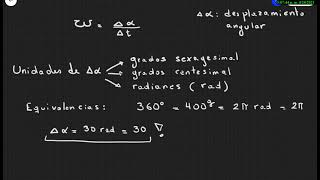 ω = Δα / Δt
Δα: desplazamiento
angular
Unidades de Δα
grados sexagesimal
grados centesimal
radianes (rad)
Equivalencias: 360° = 400ᵍ = 2π rad = 2π
Δα = 30 rad = 30 !